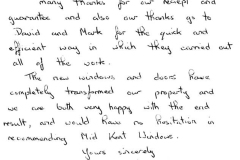 many thanks for our receipt and
guarantee and also our thanks go to
David and Mark for the quick and
efficient way in which they carried out
all of the work.
The new windows and doors have
completely transformed our property and
we are both very happy with the end
result, and would have no hesitation in
recommending Mid Kent Windows.
Yours sincerely